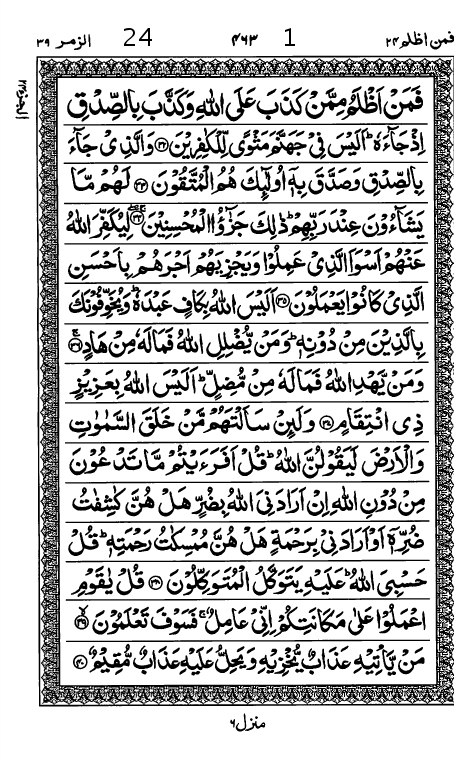 فمن اظلم ۲۴ 1 ۴۶۳ 24 الزمر ۳۹
فَمَنْ اَظْلَمُ مِمَّنْ كَذَبَ عَلَى اللّٰهِ وَكَذَّبَ بِالصِّدْقِ
اِذْ جَآءَهٗ ؕ اَلَيْسَ فِىْ جَهَنَّمَ مَثْوًى لِّلْكٰفِرِيْنَ ﴿۳۲﴾ وَالَّذِىْ جَآءَ
بِالصِّدْقِ وَصَدَّقَ بِهٖۤ اُولٰٓٮِٕكَ هُمُ الْمُتَّقُوْنَ ﴿۳۳﴾ لَهُمْ مَّا
يَشَآءُوْنَ عِنْدَ رَبِّهِمْ ؕ ذٰلِكَ جَزٰٓؤُا الْمُحْسِنِيْنَ ﴿۳۴﴾ لِيُكَفِّرَ اللّٰهُ
عَنْهُمْ اَسْوَاَ الَّذِىْ عَمِلُوْا وَيَجْزِيَهُمْ اَجْرَهُمْ بِاَحْسَنِ
الَّذِىْ كَانُوْا يَعْمَلُوْنَ ﴿۳۵﴾ اَلَيْسَ اللّٰهُ بِكَافٍ عَبْدَهٗ ؕ وَيُخَوِّفُوْنَكَ
بِالَّذِيْنَ مِنْ دُوْنِهٖ ؕ وَمَنْ يُّضْلِلِ اللّٰهُ فَمَا لَهٗ مِنْ هَادٍ ﴿۳۶﴾
وَمَنْ يَّهْدِ اللّٰهُ فَمَا لَهٗ مِنْ مُّضِلٍّ ؕ اَلَيْسَ اللّٰهُ بِعَزِيْزٍ
ذِى انْتِقَامٍ ﴿۳۷﴾ وَلَٮِٕنْ سَاَلْتَهُمْ مَّنْ خَلَقَ السَّمٰوٰتِ
وَالْاَرْضَ لَيَقُوْلُنَّ اللّٰهُ ؕ قُلْ اَفَرَءَيْتُمْ مَّا تَدْعُوْنَ
مِنْ دُوْنِ اللّٰهِ اِنْ اَرَادَنِىَ اللّٰهُ بِضُرٍّ هَلْ هُنَّ كٰشِفٰتُ
ضُرِّهٖۤ اَوْ اَرَادَنِىْ بِرَحْمَةٍ هَلْ هُنَّ مُمْسِكٰتُ رَحْمَتِهٖ ؕ قُلْ
حَسْبِىَ اللّٰهُ ؕ عَلَيْهِ يَتَوَكَّلُ الْمُتَوَكِّلُوْنَ ﴿۳۸﴾ قُلْ يٰقَوْمِ
اعْمَلُوْا عَلٰى مَكَانَتِكُمْ اِنِّىْ عَامِلٌ ۚ فَسَوْفَ تَعْلَمُوْنَ ﴿۳۹﴾
مَنْ يَّاْتِيْهِ عَذَابٌ يُّخْزِيْهِ وَيَحِلُّ عَلَيْهِ عَذَابٌ مُّقِيْمٌ ﴿۴۰﴾
منزل ۶